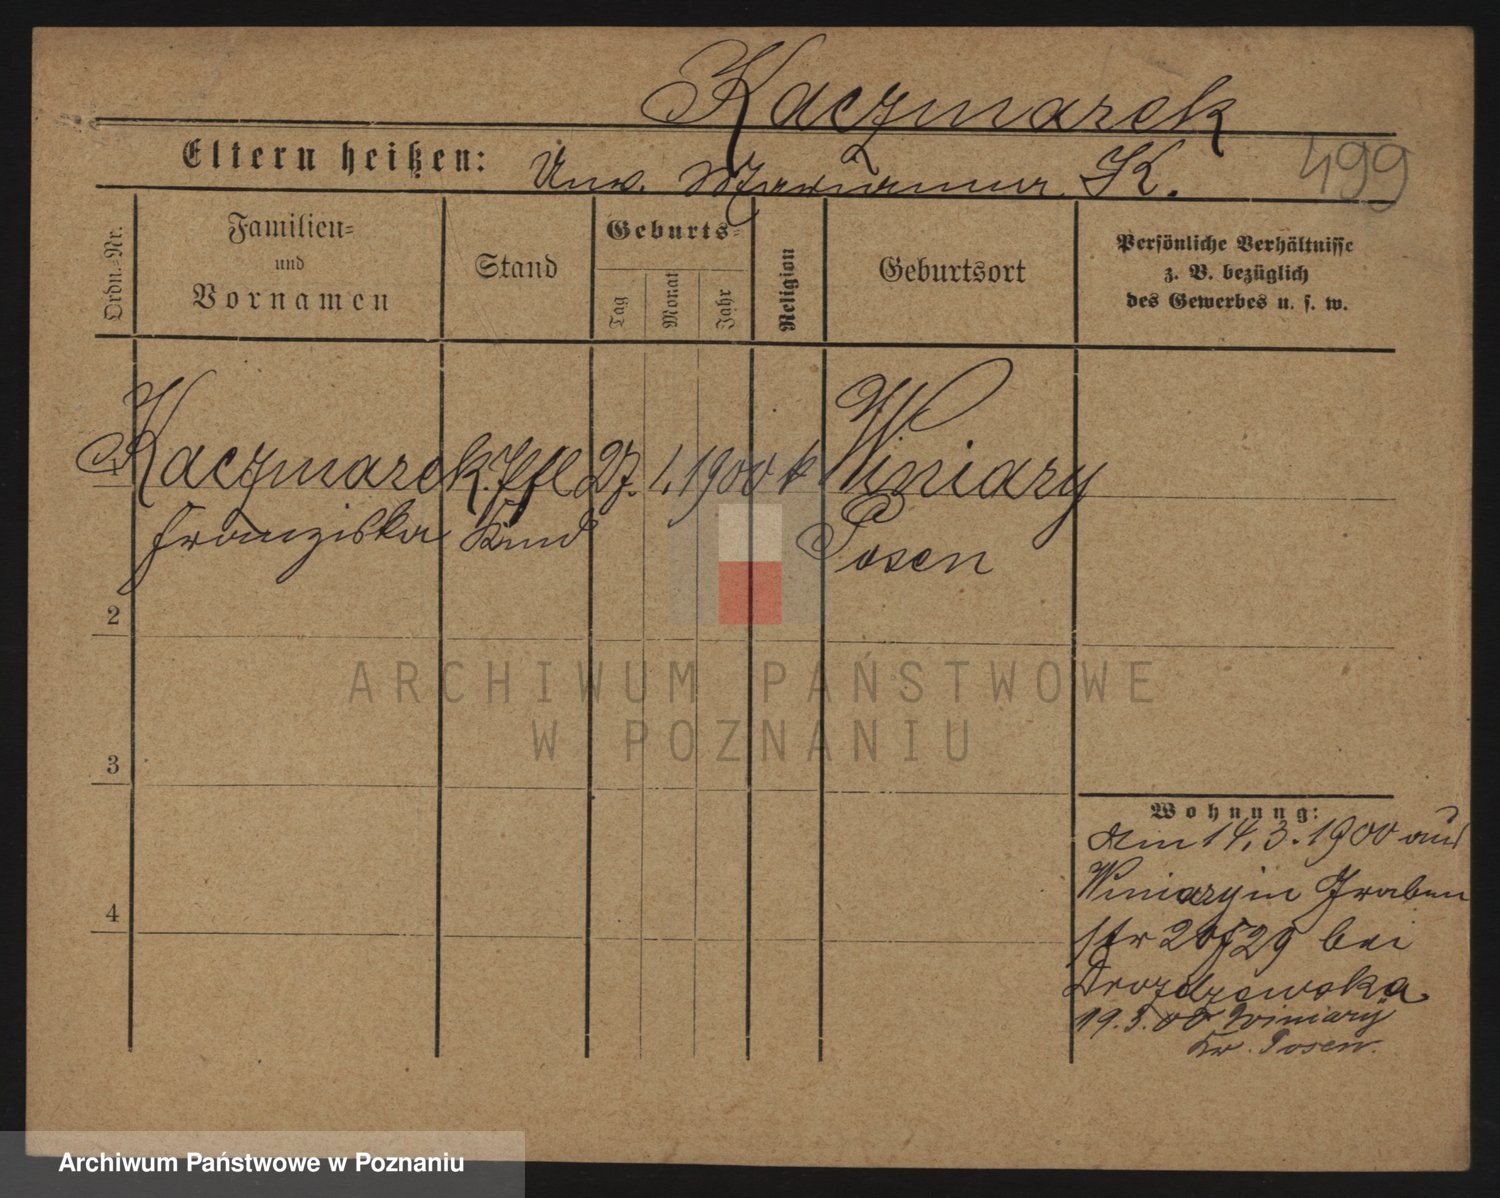 Kaczmarek
Eltern heißen: Unv. Marianna K. 499
Ordn.-Nr.
Familien-
und
Vornamen
Stand
Geburts-
Tag
Monat
Jahr
Religion
Geburtsort
Persönliche Verhältnisse
z. B. bezüglich
des Gewerbes u. s. w.
1 Kaczmarek Pfl 27. 1. 1900 k Winiary
Franziska Kind Posen
2
3
4
Wohnung:
am 14.3.1900 aus
Winiary in Graben
str 28/29 bei
Drozdzewska
19.3.00 Winiary
Kr. Posen.
ARCHIWUM PAŃSTWOWE
W POZNANIU
Archiwum Państwowe w Poznaniu